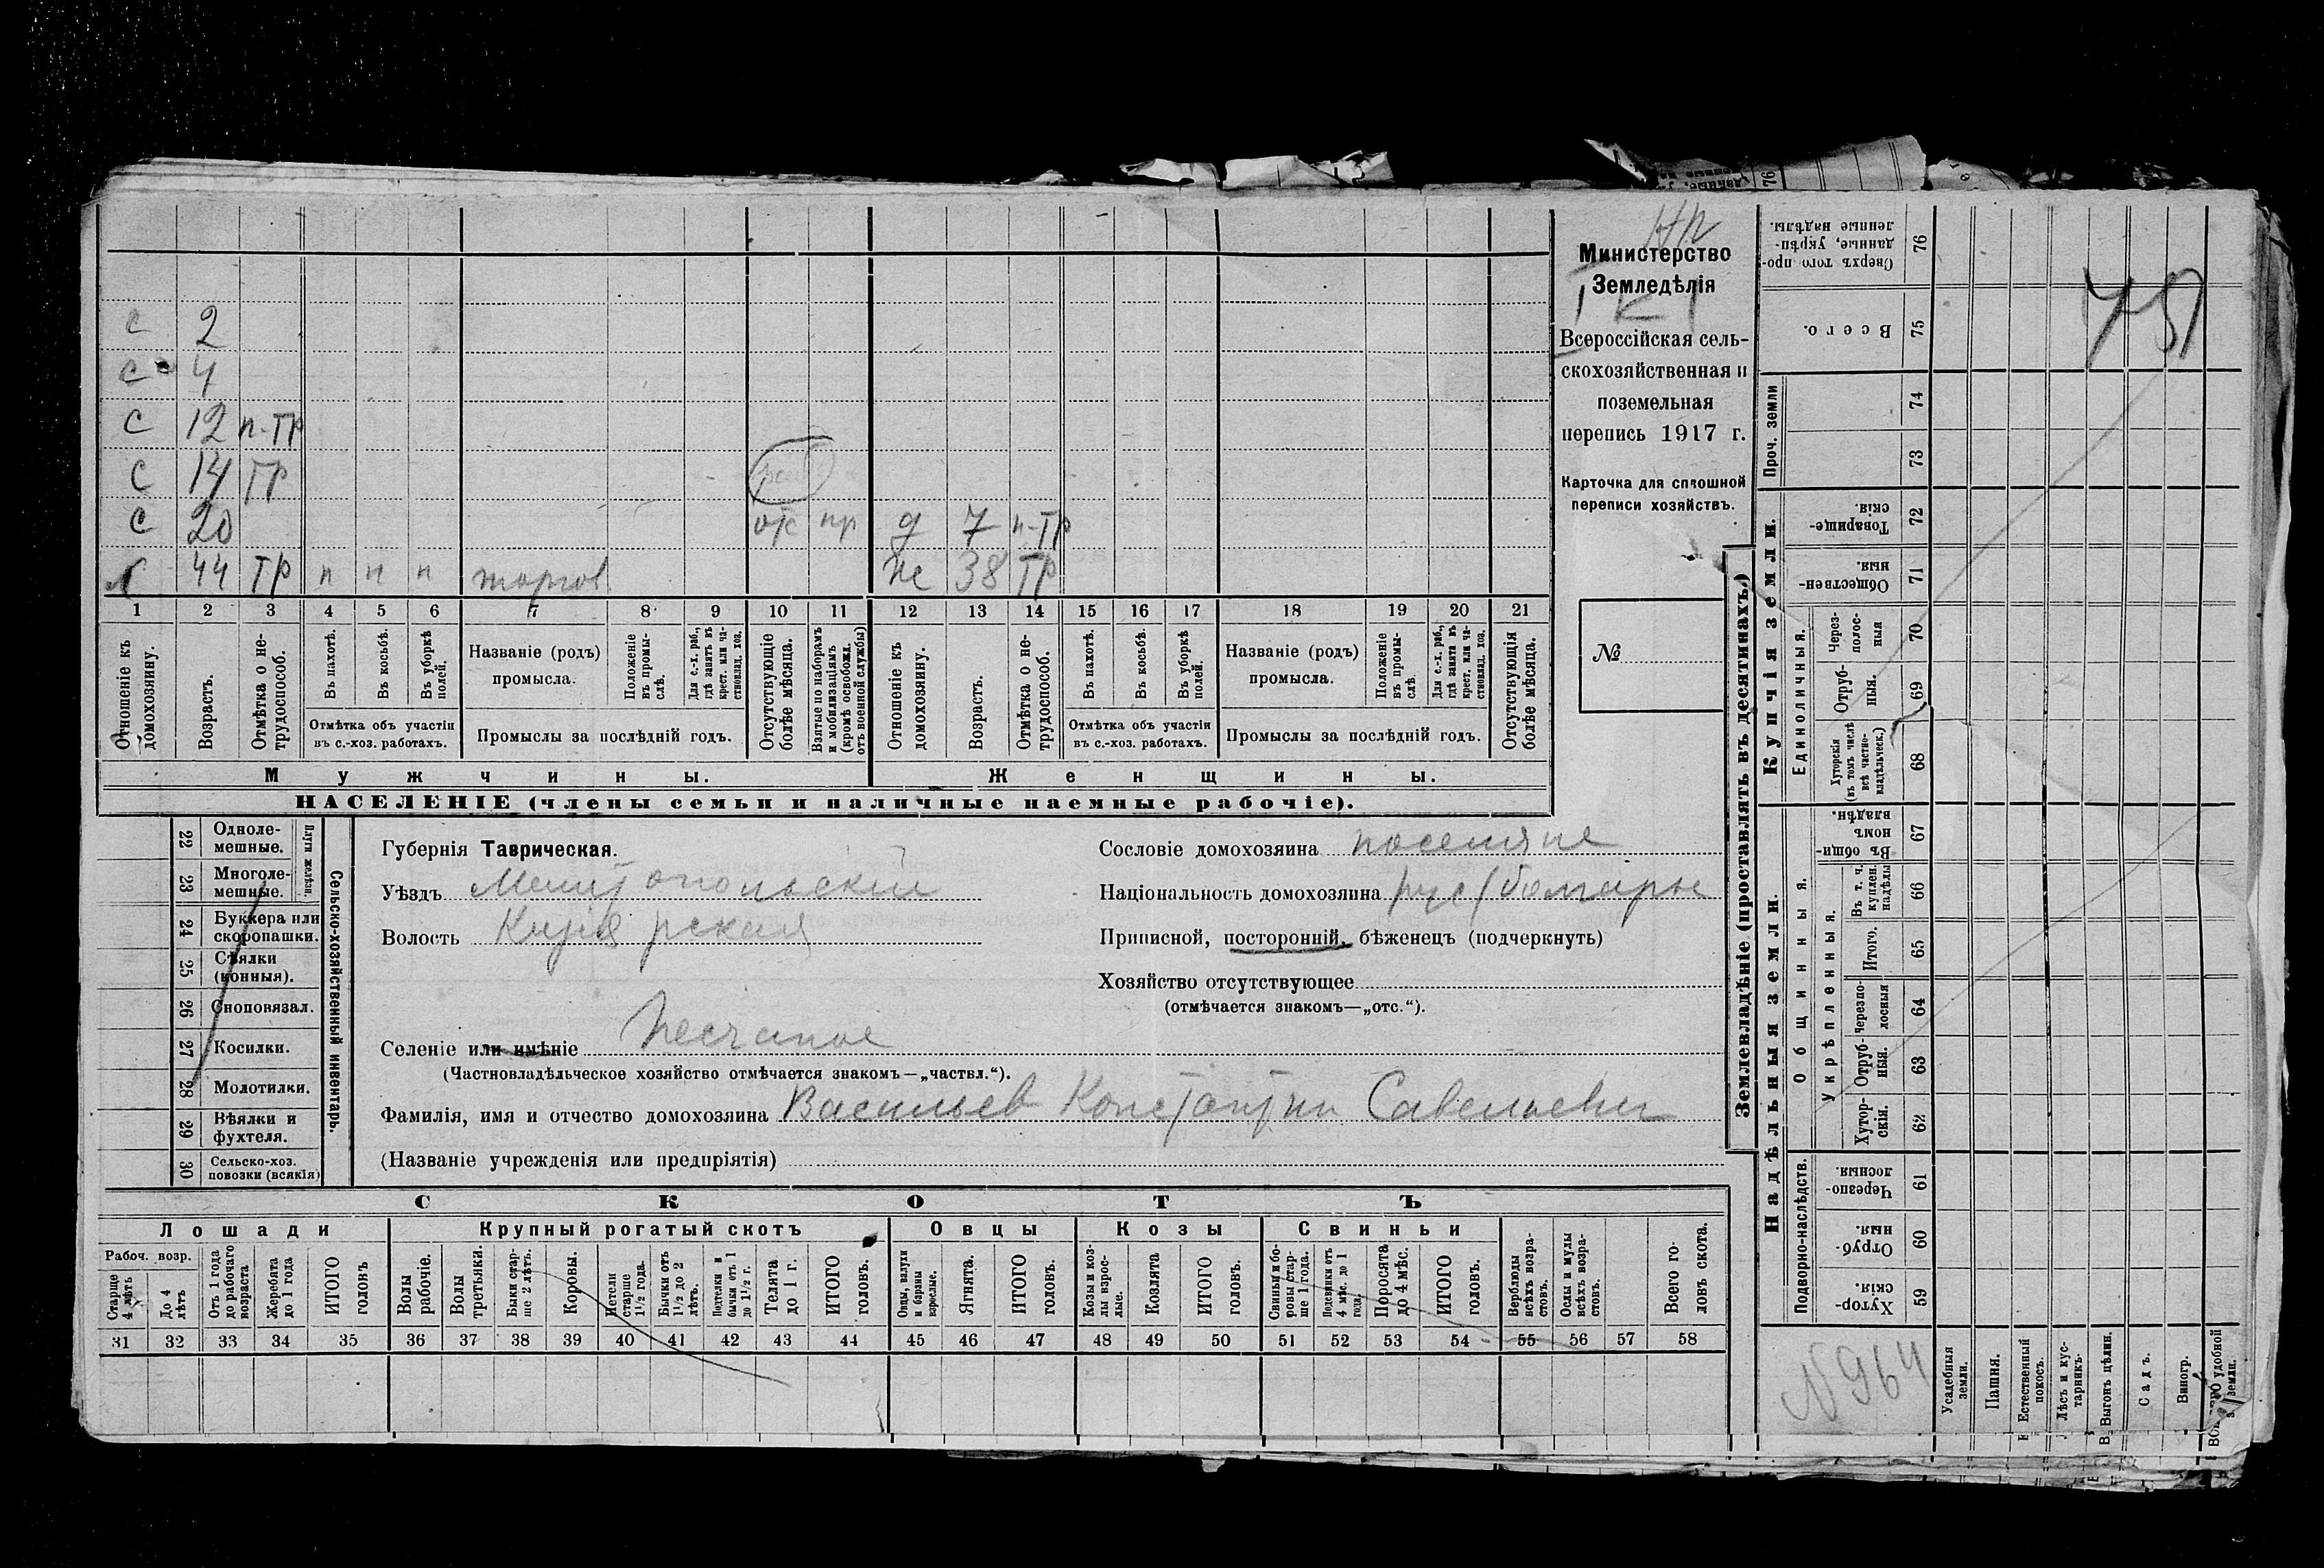 НП
Министерство
Земледѣлія
Всероссійская сель-
скохозяйственная и
поземельная
перепись 1917 г.
Карточка для сплошной
переписи хозяйствъ.
№
с 2
с 4
с 12 п-тр
с 14 тр
с 20 отс пр д 7 п-тр
44 тр п п п торгов. же 38 тр
1 2 3 4 5 6 7 8 9 10 11 12 13 14 15 16 17 18 19 20 21
Отношеніе къ домохозяину.
Возрастъ.
Отмѣтка о не-трудоспособ.
Въ пахотѣ.
Въ косьбѣ.
Въ уборкѣ полей.
Отмѣтка объ участіи
въ с.-хоз. работахъ.
Названіе (родъ)
промысла.
Положеніе въ промы-слѣ.
Для с.-х. раб., гдѣ занятъ въ крест. или ча-стновлад. хоз.
Промыслы за послѣдній годъ.
Отсутствующіе болѣе мѣсяца.
Взятые по наборамъ и мобилизаціямъ (кромѣ освобожд. отъ военной службы)
Отношеніе къ домохозяину.
Возрастъ.
Отмѣтка о не-трудоспособ.
Въ пахотѣ.
Въ косьбѣ.
Въ уборкѣ полей.
Отмѣтка объ участіи
въ с.-хоз. работахъ.
Названіе (родъ)
промысла.
Положеніе въ промы-слѣ
Для с.-х. раб., гдѣ занята въ крест. или ча-стновлад. хоз.
Промыслы за послѣдній годъ.
Отсутствующія болѣе мѣсяца.
Мужчины.
Женщины.
НАСЕЛЕНІЕ (члены семьи и наличные наемные рабочіе).
22 Одноле-мешные.
23 Многоле-мешные.
Плуги желѣзн.
24 Буккера или скоропашки.
25 Сѣялки (конныя).
26 Сноповязал.
27 Косилки.
28 Молотилки.
29 Вѣялки и фухтеля.
30 Сельско-хоз. повозки (всякія)
Сельско-хозяйственный инвентарь.
Губернія Таврическая.
Уѣздъ Мелитопольскій
Волость Кизіярская
Сословіе домохозяина поселяне
Національность домохозяина рус (болгары
Приписной, посторонній, бѣженецъ (подчеркнуть)
Хозяйство отсутствующее
(отмѣчается знакомъ—„отс.“).
Селеніе или имѣніе Песчаное
(Частновладѣльческое хозяйство отмѣчается знакомъ—„частвл.“).
Фамилія, имя и отчество домохозяина Васильев Константин Савельевич
(Названіе учрежденія или предпріятія)
СКОТЪ
Лошади
Крупный рогатый скотъ
Овцы
Козы
Свиньи
Рабоч. возр.
Старше 4 лѣтъ
До 4 лѣтъ
Отъ 1 года до рабочаго возраста
Жеребята до 1 года
ИТОГО головъ
Волы рабочіе.
Волы третьяки.
Быки стар-ше 2 лѣтъ.
Коровы.
Нетели старше 1 1/2 года.
Бычки отъ 1 1/2 до 2 лѣтъ.
Подтелки и бычки отъ 1 до 1 1/2 г.
Телята до 1 г.
ИТОГО головъ.
Овцы, валухи и бараны взрослые.
Ягнята.
ИТОГО головъ.
Козы и коз-лы взрос-лые.
Козлята
ИТОГО головъ.
Свиньи и бо-ровы стар-ше 1 года.
Подсвинки отъ 4 мѣс. до 1 года
Поросята до 4 мѣс.
ИТОГО головъ.
Верблюды всѣхъ возра-стовъ.
Ослы и мулы всѣхъ возра-стовъ.
Всего го-ловъ скота.
31 32 33 34 35 36 37 38 39 40 41 42 43 44 45 46 47 48 49 50 51 52 53 54 55 56 57 58
Землевладѣніе (проставлять въ десятинахъ.)
Купчія земли.
Надѣльныя земли.
Сверхъ того про-данные, укрѣп-ленные надѣлы. 76
Всего. 75
Проч. земли 74
73
Товарище-скія. 72
Обществен-ныя. 71
Единоличныя.
Через-полос-ныя 70
Отруб-ныя. 69
Хуторскія (въ томъ числѣ всѣ частно-владѣльческ.) 68
Общинныя.
Въ общи-номъ владѣн. 67
Укрѣпленныя.
Въ т. ч. куплен. надѣлы 66
Итого. 65
Черезпо-лосныя 64
Отруб-ныя. 63
Хутор-скія. 62
Подворно-наслѣдств.
Черезпо-лосныя. 61
Отруб-ныя. 60
Хутор-скія. 59
Усадебныя земли.
Пашня.
Естественный покосъ.
Лѣсъ и кус-тарникъ.
Выгонъ цѣлин.
Садъ.
Виногр.
удобной земли.
N 964